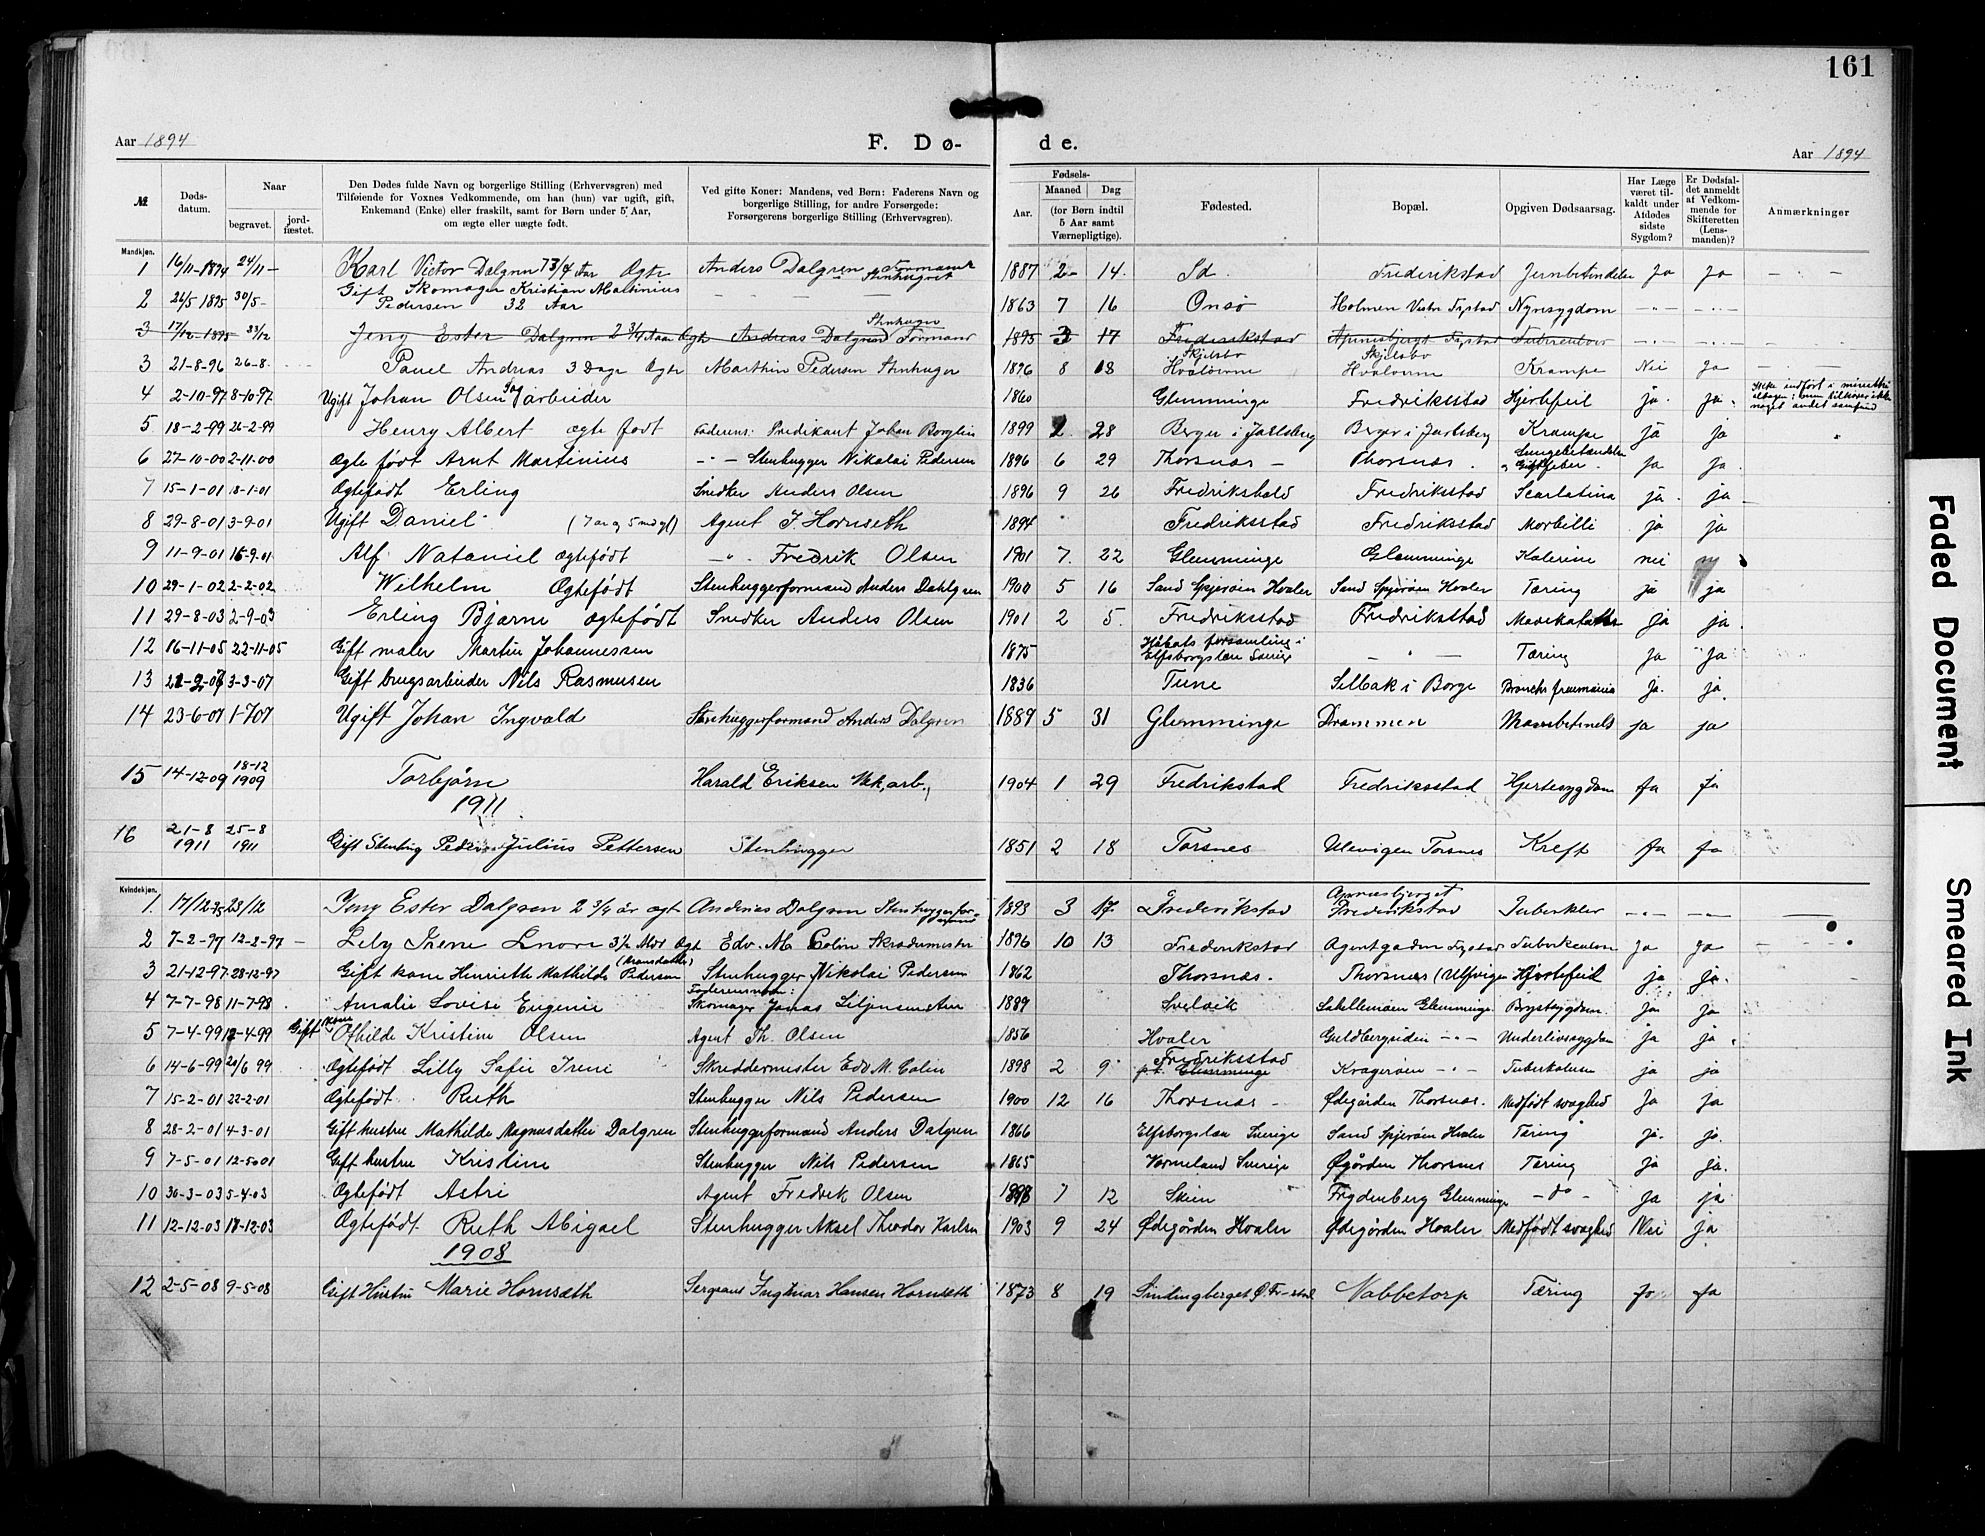 161
Aar 1894 F. Dø- de. Aar 1894
№.
Døds-
datum.
Naar
begravet.
jord-
fæstet.
Den Dødes fulde Navn og borgerlige Stilling (Erhvervsgren) med
Tilføiende for Voxnes Vedkommende, om han (hun) var ugift, gift,
Enkemand (Enke) eller fraskilt, samt for Børn under 5 Aar,
om ægte eller uægte født.
Ved gifte Koner: Mandens, ved Børn: Faderens Navn og
borgerlige Stilling, for andre Forsørgede:
Forsørgerens borgerlige Stilling (Erhvervsgren).
Fødsels-
Aar.
Maaned
Dag
(for Børn indtil
5 Aar samt
Værnepligtige).
Fødested.
Bopæl.
Opgiven Dødsaarsag.
Har Læge
været til-
kaldt under
Afdødes
sidste
Sygdom?
Er Dødsfal-
det anmeldt
af Vedkom-
mende for
Skifteretten
(Lens-
manden)?
Anmærkninger
Mandkjøn.
1 16/11-1894 24/11- Karl Victor Dalgren 7 3/4 Aar Ægte Anders Dalgren Formand Stenhuggeri 1887 2 14. Id. Frederikstad Ja Ja
2 26/5 1895 30/5- Gift Skomager Kristian Martinius
Pedersen 32 Aar 1863 7 16 Onsø Holmen Vestre Nyresygdom
3 17/12-1895 Jeny Ester Dalgren 2 3/4 Aar Ægte Andreas Dalgren Stenhugger Formand 1895 3 17 Frederikstad
3 21-8-96 26-8. Paul Andreas 3 Dage Ægte Marthin Pedersen Stenhuger 1896 8 18 Skjelsbo Hvaløerne Skjelsbo Hvaløerne Krampe Nei Ja
4 2-10-97 8-10-97 Ugift Johan Olsen Dagarbeider 1860 Glemminge Fredriksstad Hjertefeil ja. ja.
5 18-2-99 26-2-99 Henry Albert ægte født Faderens: Predikant Johan Borglin 1899 2. 28 Berger i Jarlsberg Berger i Jarlsberg Krampe ja ja
6 27-10-00 2-11-00 Ægte født Arnt Martinius -"- Stenhugger Nikolai Pedersen 1896 6 29 Thorsnæs - Thorsnæs. Lungebetændelse og Gigtfeber. ja ja.
7 15-1-01 18-1-01 Ægtefødt Erling Snedker Anders Olsen 1896 9 26 Fredrikshald Fredriksstad Scarlatina ja. ja
8 29-8-01 3-9-01 Ugift Daniel (7 ar og 5 md gl) Agent J. Hornseth 1894 Fredriksstad Fredriksstad Morbilli ja ja
9 11-9-01 15-9-01 Alf Nataniel ægtefødt -"- Fredrik Olsen 1901 7. 22 Glemminge Glemminge Kolerine nei
10 29-1-02 2-2-02 Wilhelm Ægtefødt Stenhuggerformand Anders Dahlgren 1900 5 16 Sand Spjerøen Hvaler Sand Spjerøen Hvaler Tæring ja ja
11 29-8-03 2-9-03 Erling Bjarne ægtefødt Snedker Anders Olsen 1901 2 5. Fredriksstad Fredriksstad ja ja.
12 16-11-05 22-11-05 Gift maler Martin Johannessen 1875 Håbets forsamling i
Elfsborgslæn Sverige - " - Tæring ja ja
13 3-3-07 Gift brugsarbeider Nils Rasmusen 1836 Tune Selbak i Borge ja. ja
14 23-6-07 1-707 Ugift Johan Ingvald Stenhuggerformand Anders Dalgren 1889 5 31 Glemminge Drammen ja ja
15 14-12-09 18-12
1909 Torbjørn Harald Eriksen Mek. arb. 1904 1 29 Fredrikstad Fredriksstad Hjertesygdom Ja Ja
1911
16 21-8
1911 25-8
1911 Gift Stenhug Peder Julius Pettersen Stenhugger 1851 2 18 Torsnes Ulevigen Torsnes Kreft Ja Ja
Kvindekjøn.
1. 17/12 95 23/12 Jeny Ester Dalgren 2 3/4 år ægt Andreas Dalgren Stenhuggerfor-
mand 1893 3 17 Frederikstad Apenesbjerget
Frederikstad Tuberkler
2 7-2-97 12-2-97 Lely Irene Enore 3 1/2 Mdr Ægt Edv. M. Colin Skrædermester 1896 10 13 Frederikstad Agentgaden Tuberkelose Ja Ja
3 21-12-97 28-12-97 Gift kone Henriette Mathilde Pedersen Stenhugger Nikolai Pedersen 1862 Thorsnæs. Thorsnæs (Ulfvigen Hjertefeil ja ja.
4 7-7-98 11-7-98 Amalie Lovise Eugenie Faderens navn:
Skomager Jonas 1889 Svelvik Glemminge. Brystsygdom. ja ja
5 7-4-99 12-4-99 Gift Kone Othilde Kristine Olsen Agent Th. Olsen 1856 Hvaler Guldbergsiden -"- Underlivssygdom ja ja
6 14-6-99 20/6 99 Ægtefødt Lilly Safie Irene Skreddermester Edv M. Colin 1898 2 9 Fredriksstad
p.t. Glemminge Kragerøen -"- Tuberkulose ja ja
7 15-2-01 22-2-01 Ægtefødt Ruth Stenhugger Nils Pedersen 1900 12 16 Thorsnæs - Ødegården Thorsnæs. Medfødt svaghed ja ja
8 28-2-01 4-3-01 Gift hustru Mathilde Magnusdatter Dalgren Stenhuggerformand Anders Dalgren 1866 Elfsborgslæn Sverige Sand Spjerøen Hvaler Tæring ja. ja.
9 7-5-01 12-5-01 Gift hustru Kristine Stenhugger Nils Pedersen 1865 Vermeland Sverige Øgården Thorsnes Tæring ja ja.
10 30-3-03 5-4-03 Ægtefødt Astri Agent Fredrik Olsen 1898 7 12 Skien Frydenberg Glemminge - do - ja ja
11 12-12-03 18-12-03 Ægtefødt Ruth Abigael Stenhugger Aksel Theodor Karlsen 1903 9 24 Ødegården Hvaler Ødegården Hvaler Medfødt svaghed Nei ja
1908
12 2-5-08 9-5-08 Gift Hustru Marie Hornseth Sergeant Ingmar Hansen Hornseth 1873 8 19 Sindingberget Ø. Fr-stad Nabbetorp Tæring Jo Ja
Faded Document
Smeared Ink